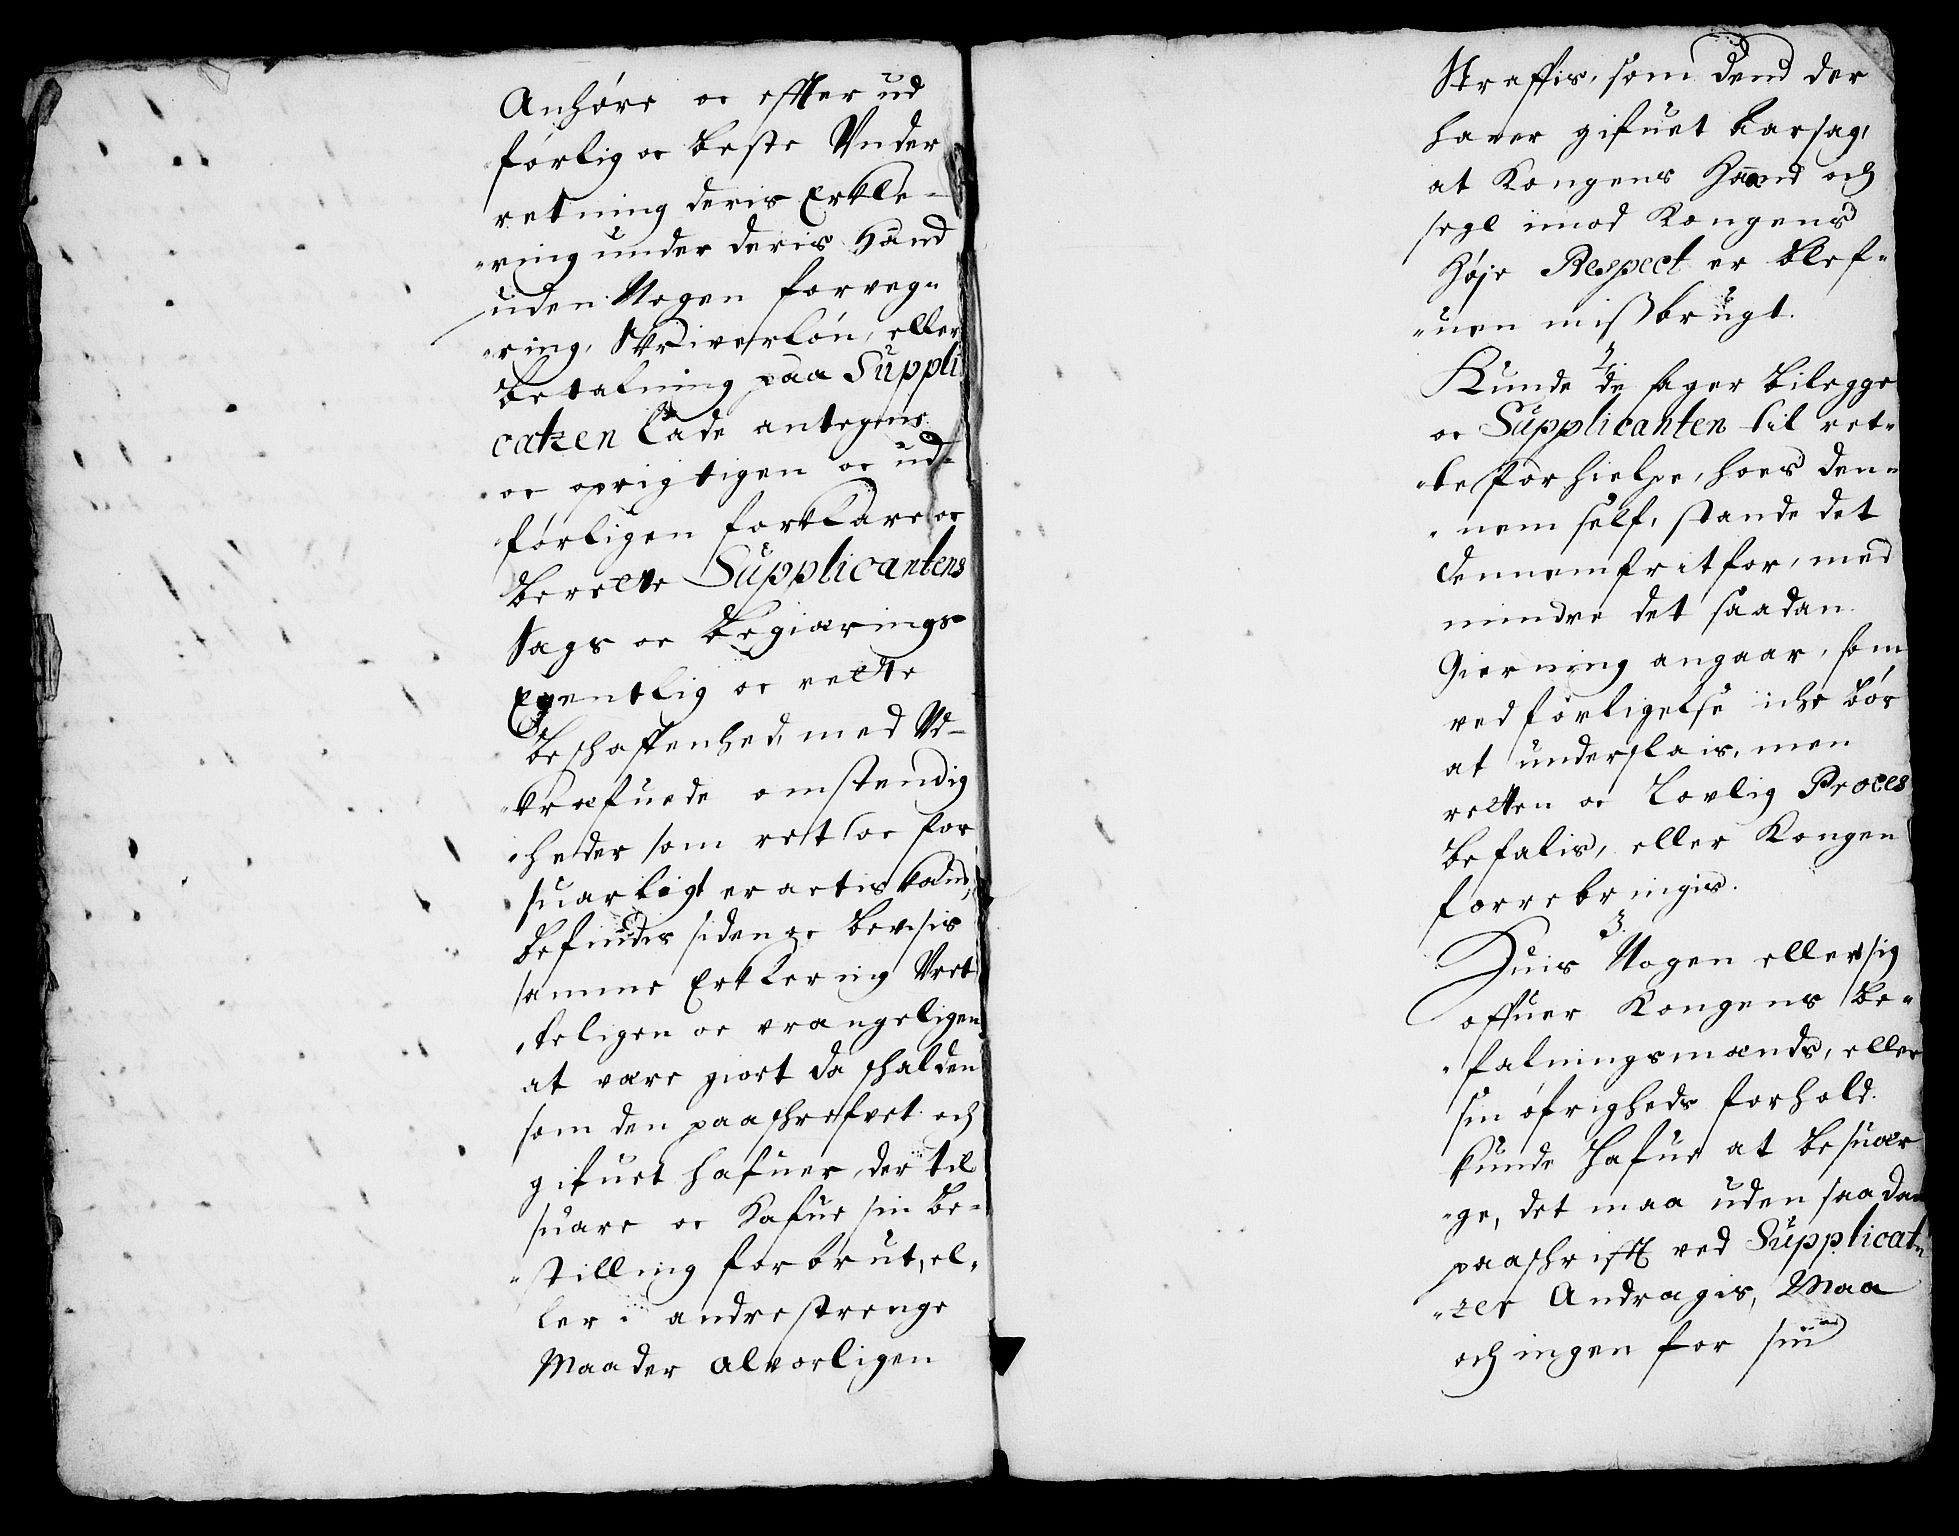 Anhøre oc effter ud
førlig oc beste Vnder
retning deris Erkle-
ring under deris Haand
uden Nogen forveg-
ring, Skriverløn, eller
betalning paa Suppli
catzen Lade antegne
oc oprigtigen oc ud-
førligen forklare oc
berette Supplicantens
Sags oc begiærings
Egentlig oc rette
beschaffenhed, med Vd-
krafuede omstendig
heder som ret oc for
suarligt eractis kand,
befindis siden oc bevisis
samme Erklering Vret
teligen oc vrangeligen
at være giort da schal den
som den paaschrefvet och
gifuet hafuer, der til
suare oc hafue sin be-
stilling forbrut, el-
ler i andre strenge
Maader alvorligen
Straffis, som dend der
haver gifuet aarsag,
at Kongens Haand och
segl imod Kongens
Høje Respect er blef-
uen mißbrugt.
2.
Kunde de sager bilegge
oc Supplicanten til ret-
te forhielpe, hoes den-
nem self, stande det
dennem frit for, med
mindre det saadan
Gierning angaar, som
ved forligelse iche bør
at underslais, men
retten oc Lovlig Proces
befalis, eller Kongen
forrebringis.
3.
Huis Nogen ellers sig
offuer Kongens be-
falningsmands, eller
sin øfrigheds forhold
kunde hafue at besuær
ge, det maa uden saadan
paaschrifft ved Supplicat-
zer Andragis, Maa
och ingen for sin